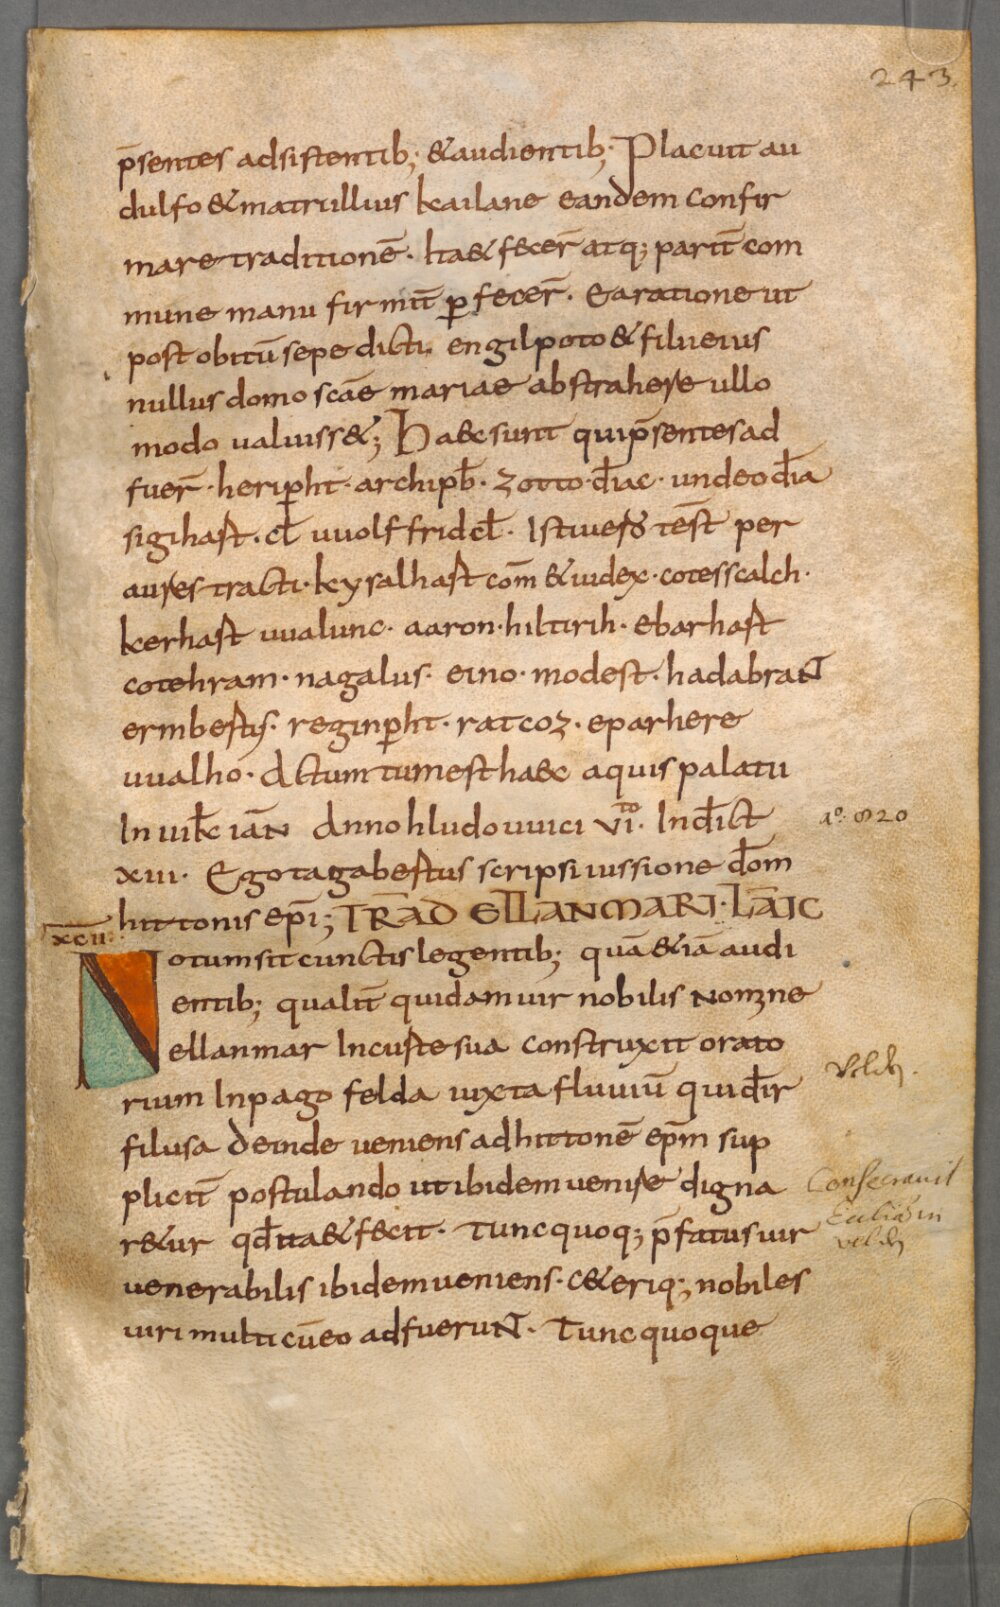 243.
p̄sentes adsistentib; & audientib; Placuit au
dulfo & matrulluis kailane eandem confir
mare traditionē. Ita & fecer̄ atq; parit̄ com
mune manu firmit̄ ꝑfecer̄. Ea ratione ut
post obitū sepe dicti engilpoto & filii eius
nullus domo scāe mariae abstrahere ullo
modo ualuiss&; Haec sunt qui p̄sentes ad
fuer̄. heripħt. archipb̄. zotto. diac̄. undeo dīa
sigihast. cl̄ uuolffrid cl̄. Isti uero test̄ per
aures tracti. kysalhast com̄ & iudex. cotesscalch.
kerhast uualunc. aaron. hiltirih. ebarhast
cotehram. nagalus. eino. modest. hadabrant
ermbestis. reginꝑht. ratcoz. eparhere
uualho. Actum tum est haec aquis palatii
In uiii kl̄ iañ Anno hludouuici vi.to Indict̄
xiii. Ego tagabestus scripsi iussione dom̄
hittonis ep̄i; TRAD̄ ELLANMARI. LAIC̄
aº. 820
xcii.
Notum sit cunctis legentib; quā & iā audi
entib; qualit̄ quidam uir nobilis nomine
ellanmar In custe sua construxit orato
rium In pago felda iuxta fluuiū qui dr̄
filusa deinde ueniens ad hittonē ep̄m sup
plicit̄ postulando ut ibidem uenire digna
r&ur qd̄ ita & fecit. Tunc quoq; p̄fatus uir
uenerabilis ibidem ueniens. c&eriq; nobiles
uiri multi cū eo adfuerunt. Tunc quoque
Veld.
Consecrauit
Eccliā in
veld